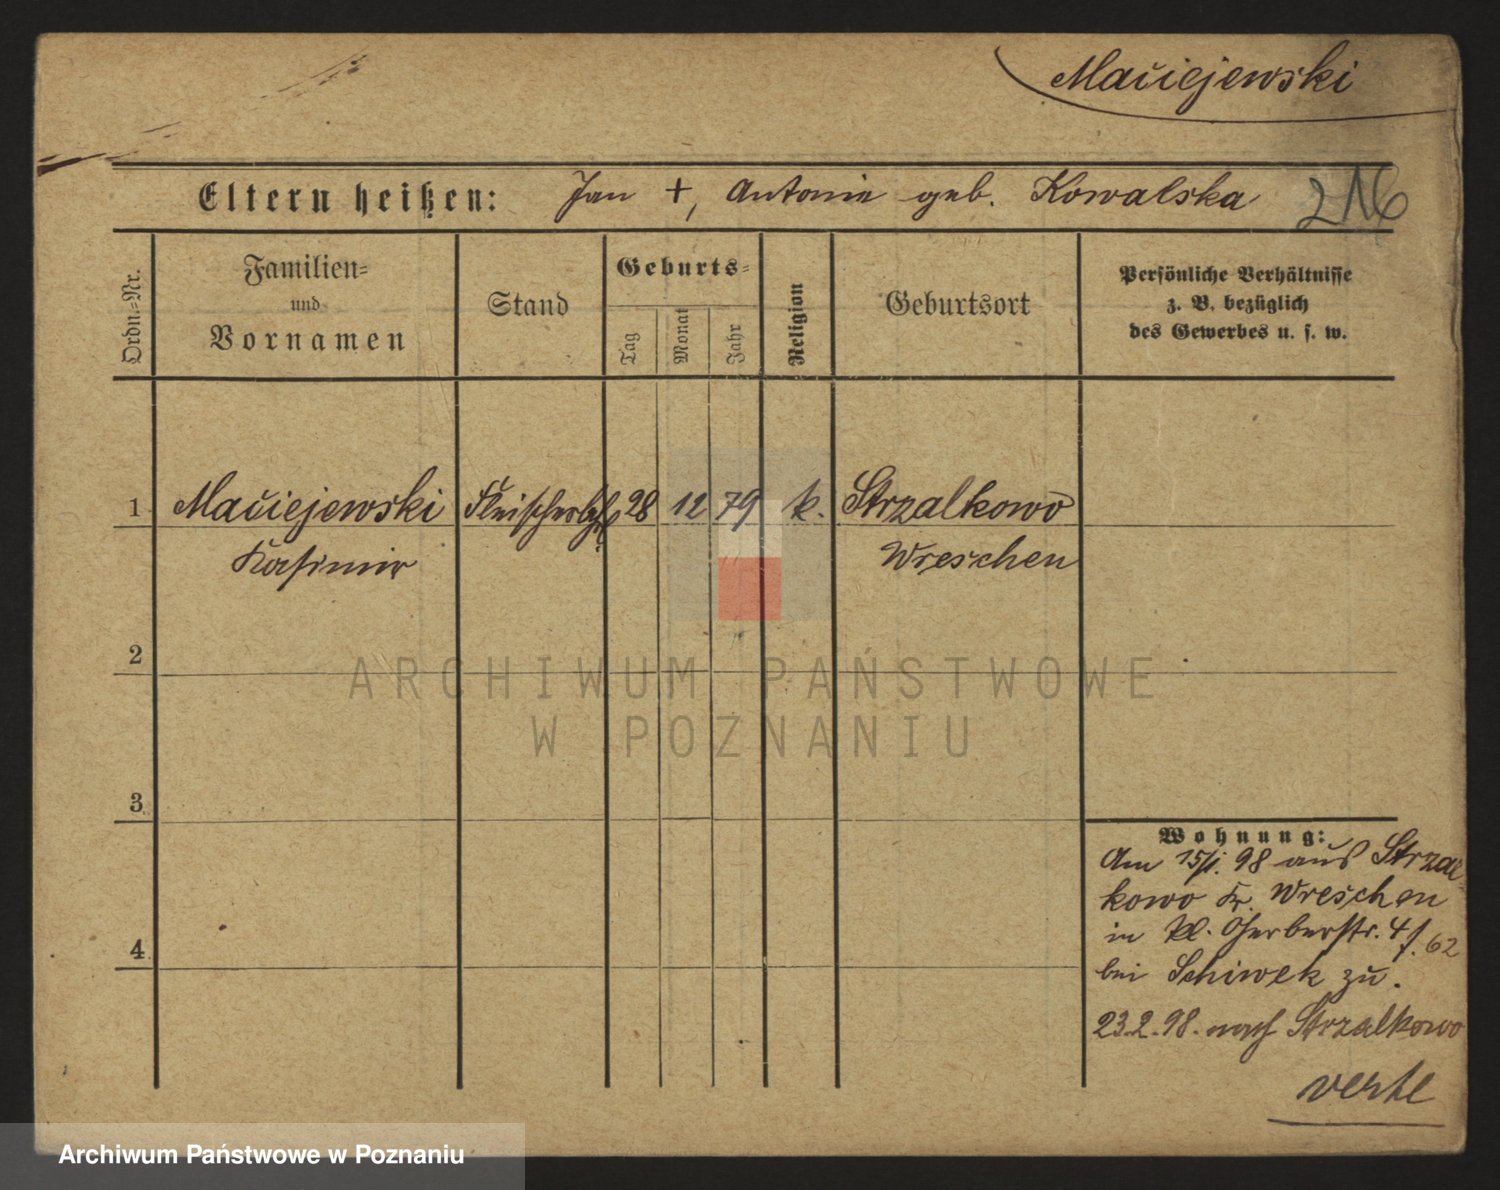 Maciejewski
Eltern heißen: Jan +, Antonie geb. Kowalska 216
Ordn.=Nr.
Familien=
und
Vornamen
Stand
Geburts=
Tag
Monat
Jahr
Religion
Geburtsort
Persönliche Verhältnisse
z. B. bezüglich
des Gewerbes u. s. w.
1 Maciejewski Fleischerlehrl 28 12 79 k. Strzalkowo
Kasimir Wreschen
2
ARCHIWUM PAŃSTWOWE
W POZNANIU
3
Wohnung:
Am 15/1. 98 aus Strzal
kowo Kr. Wreschen
in Kl. Gerberstr. 4 f. 62
4
bei Schiwek zu.
23.2.98. nach Strzalkowo
verte
Archiwum Państwowe w Poznaniu